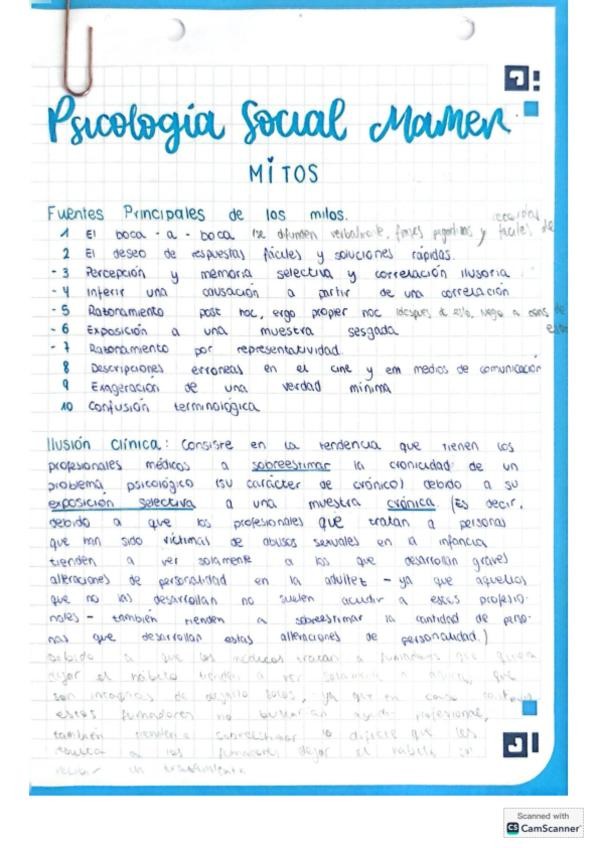 Psicología Social Mamen
MiTOS
Fuentes Principales de los mitos.
1 El boca - a - boca (se difunden verbalmente, frases pegadizas y fáciles de
recordar)
2 El deseo de respuestas fáciles y soluciones rápidas.
- 3 Percepción y memoria selectiva y correlación ilusoria
- 4 Inferir una causación a partir de una correlación
- 5 Razonamiento post hoc, ergo propter hoc (después de esto, luego a de
- 6 Exposición a una muestra sesgada
- 7 Razonamiento por representatividad
8 Descripciones erroneas en el cine y em medios de comunicación
9 Exageración de una verdad mínima
10 Confusión terminológica
Ilusión Clínica: Consiste en la tendencia que tienen los
profesionales médicos a sobreestimar la cronicidad de un
problema psicológico (su carácter de crónico) debido a su
exposición selectiva a una muestra crónica (Es decir,
debido a que los profesionales que tratan a personas
que han sido víctimas de abusos sexuales en la infancia
tienden a ver solamente a los que desarrollan graves
alteraciones de personalidad en la adultez - ya que aquellos
que no las desarrollan no suelen acudir a estos profesio-
nales - también tienden a sobreestimar la cantidad de perso-
nas que desarrollan estas alteraciones de personalidad.)
debido a que los médicos tratan a fumadores que quieren
dejar el hábito tienden a ver solamente a aquellos que
son incapaces de dejarlo solos, ya que en caso contrario
estos fumadores no buscarían ayuda profesional,
también tienden a sobreestimar lo difícil que les
resulta a los fumadores dejar el hábito sin
recibir un tratamiento
Scanned with
CS CamScanner